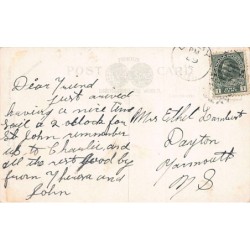 POST CARD
Dear Friend
Just arrived
having a nice time
Said a 2 oclock for
St John remember
us to Charlie and
all the rest good by
from and
John
Mrs Ethel Lambert
Dayton
Yarmouth
N S